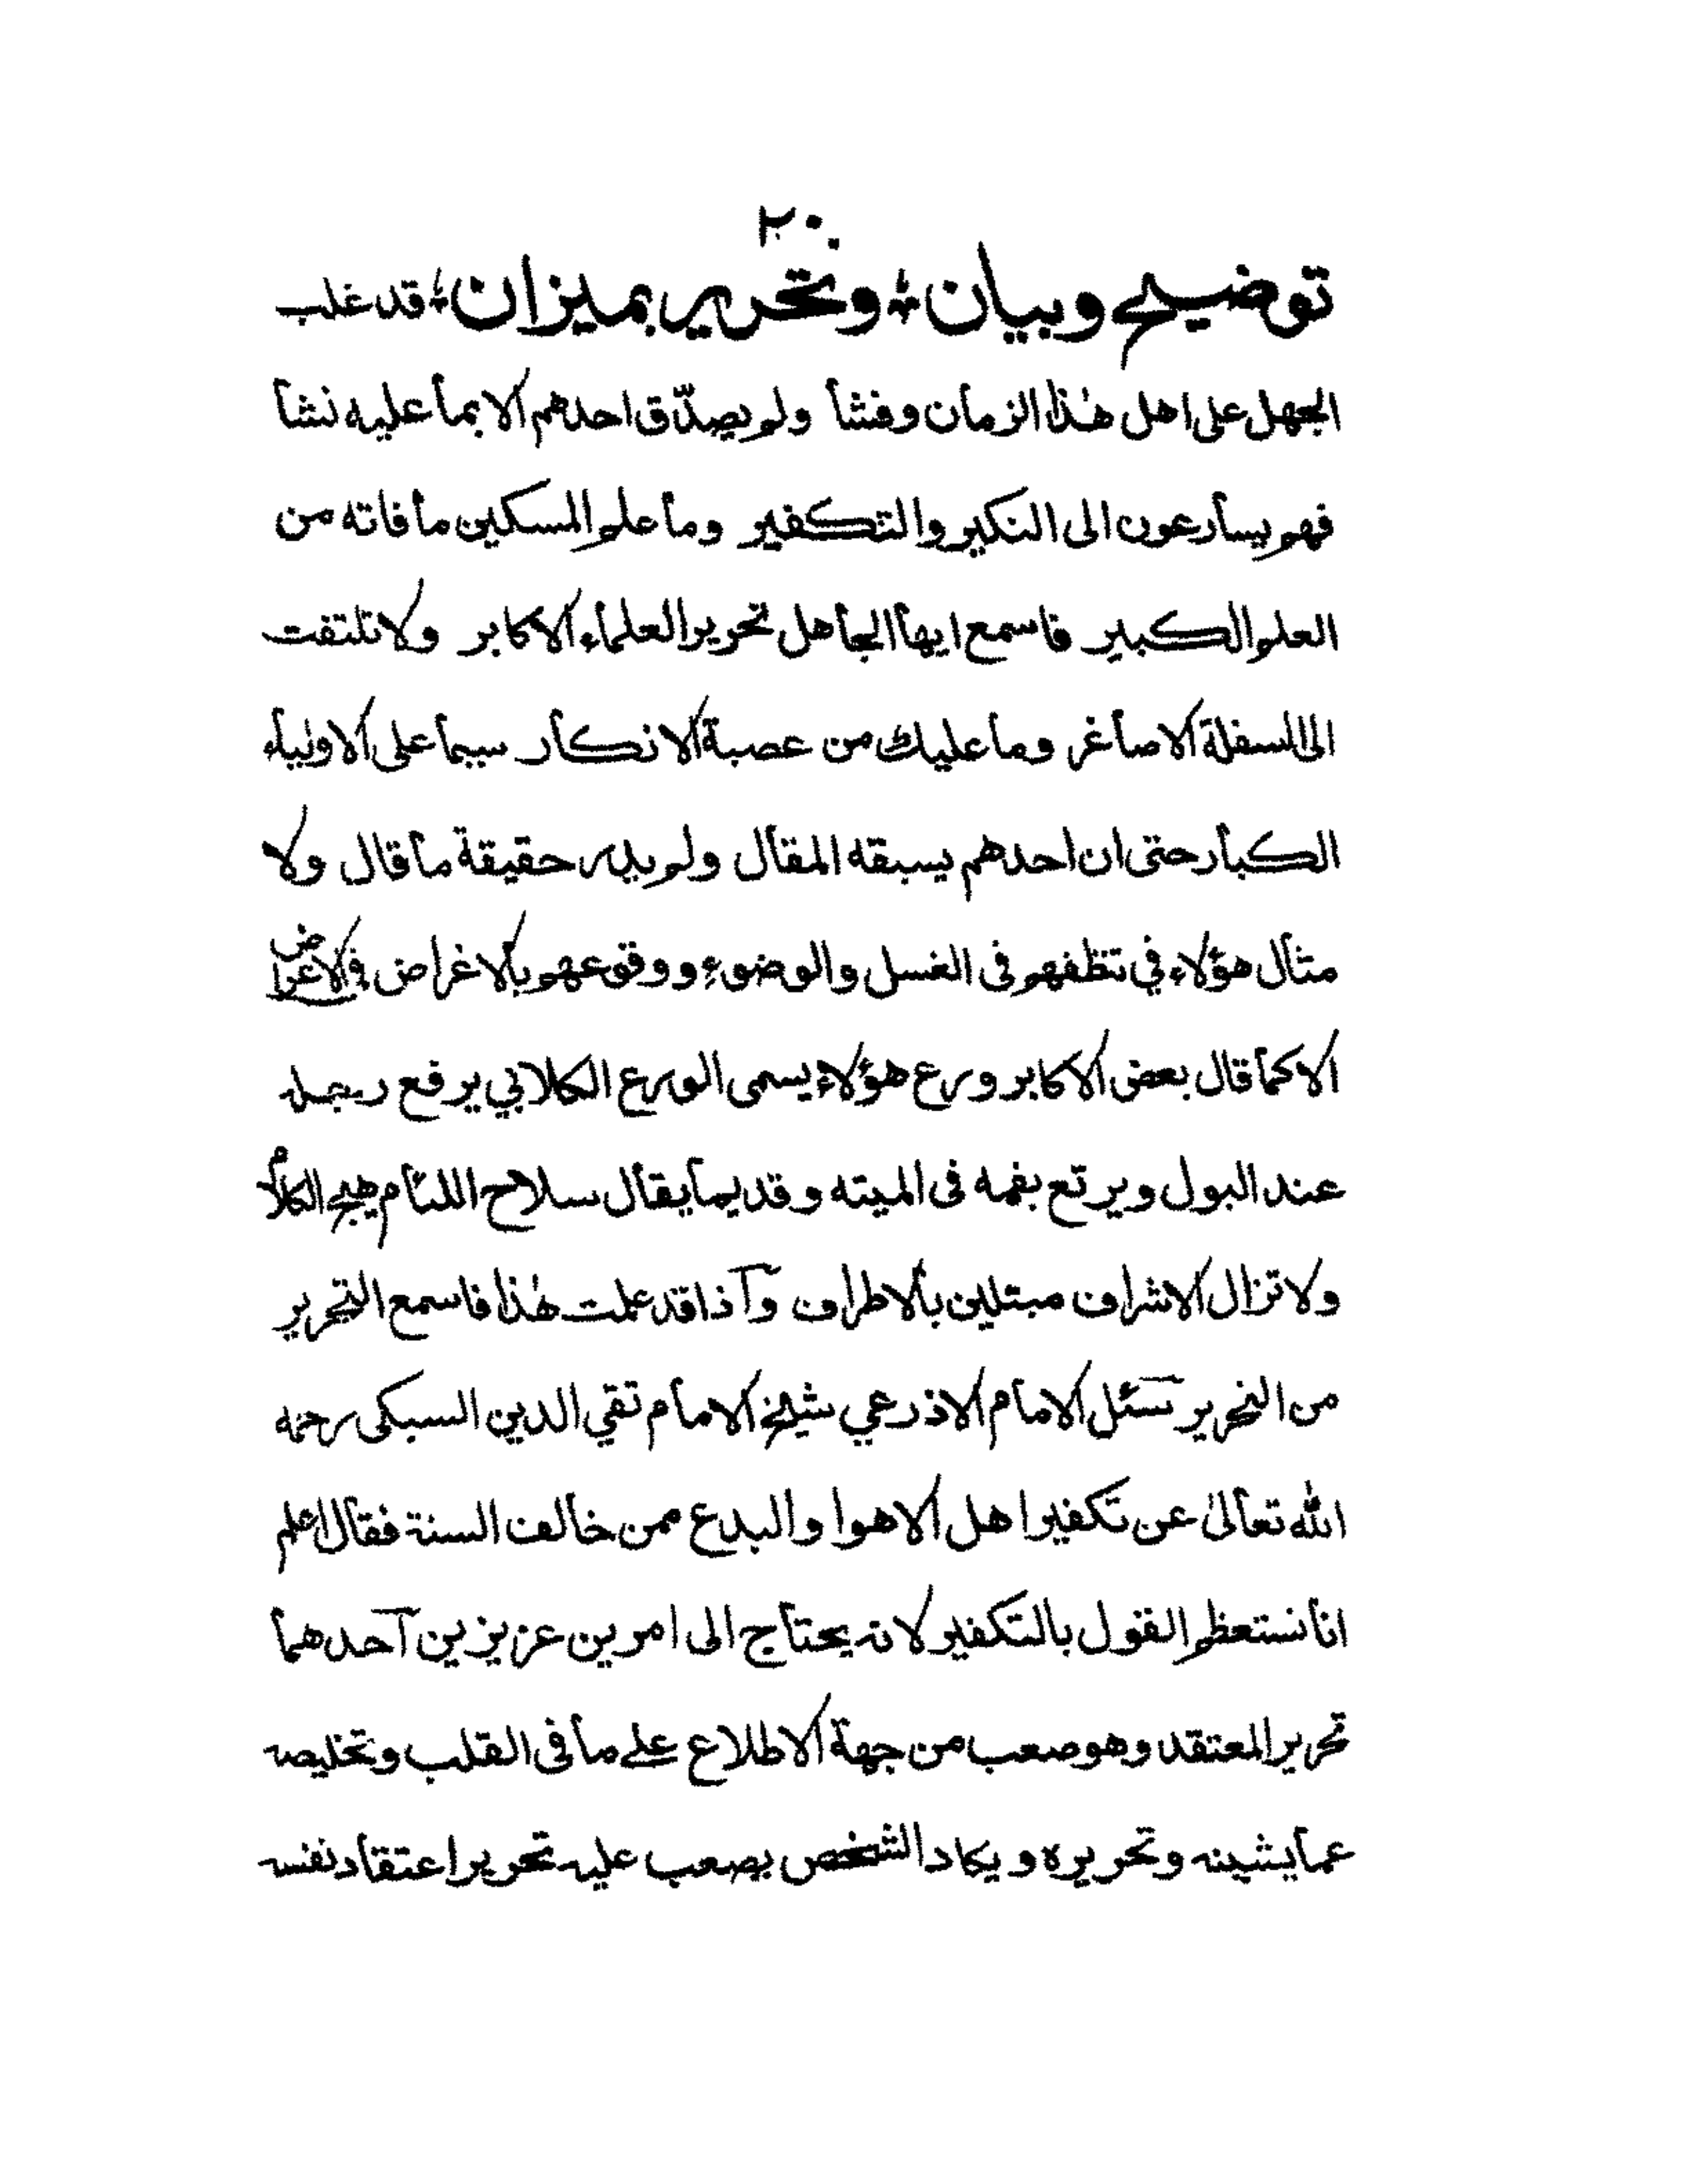 ٢٠
توضيح وبيان ؛ وتحرير بميزان ؛ قد غلب
الجهل على اهل هٰذا الزمان وفشا ولم يصدّق احدهم الا بما عليه نشأ
فهم يسارعون الى النكير والتكفير وما علم المسكين ما فاته من
العلم الكبير فاسمع ايها الجاهل تحرير العلماء الاكابر ولا تلتفت
الى السفلة الاصاغر وما عليك من عصبة الانكار سيما على الاولياء
الكبار حتى ان احدهم يسبقه المقال ولم يدر حقيقة ما قال ولا
مثال هؤلاء في تنظفهم فى الغسل والوضوء ووقوعهم بالاغراض فى الاعراض
الا كما قال بعض الاكابر ورع هؤلاء يسمى الورع الكلابي يرفع رجله
عند البول ويرتع بفمه فى الميته وقديما يقال سلاح اللئام هيج الكلام
ولا تزال الاشراف مبتلين بالاطراف وآذا قد علمت هٰذا فاسمع التحرير
من النحرير سئل الامام الاذرعي شيخ الامام تقي الدين السبكى رحمه
الله تعالىٰ عن تكفير اهل الاهوا والبدع ممن خالف السنة فقال اعلم
انا نستعظم القول بالتكفير لانه يحتاج الى امرين عزيزين آحدهما
تحرير المعتقد وهو صعب من جهة الاطلاع على ما فى القلب وتخليصه
عما يشينه وتحريره ويكاد الشخص يصعب عليه تحرير اعتقاد نفسه